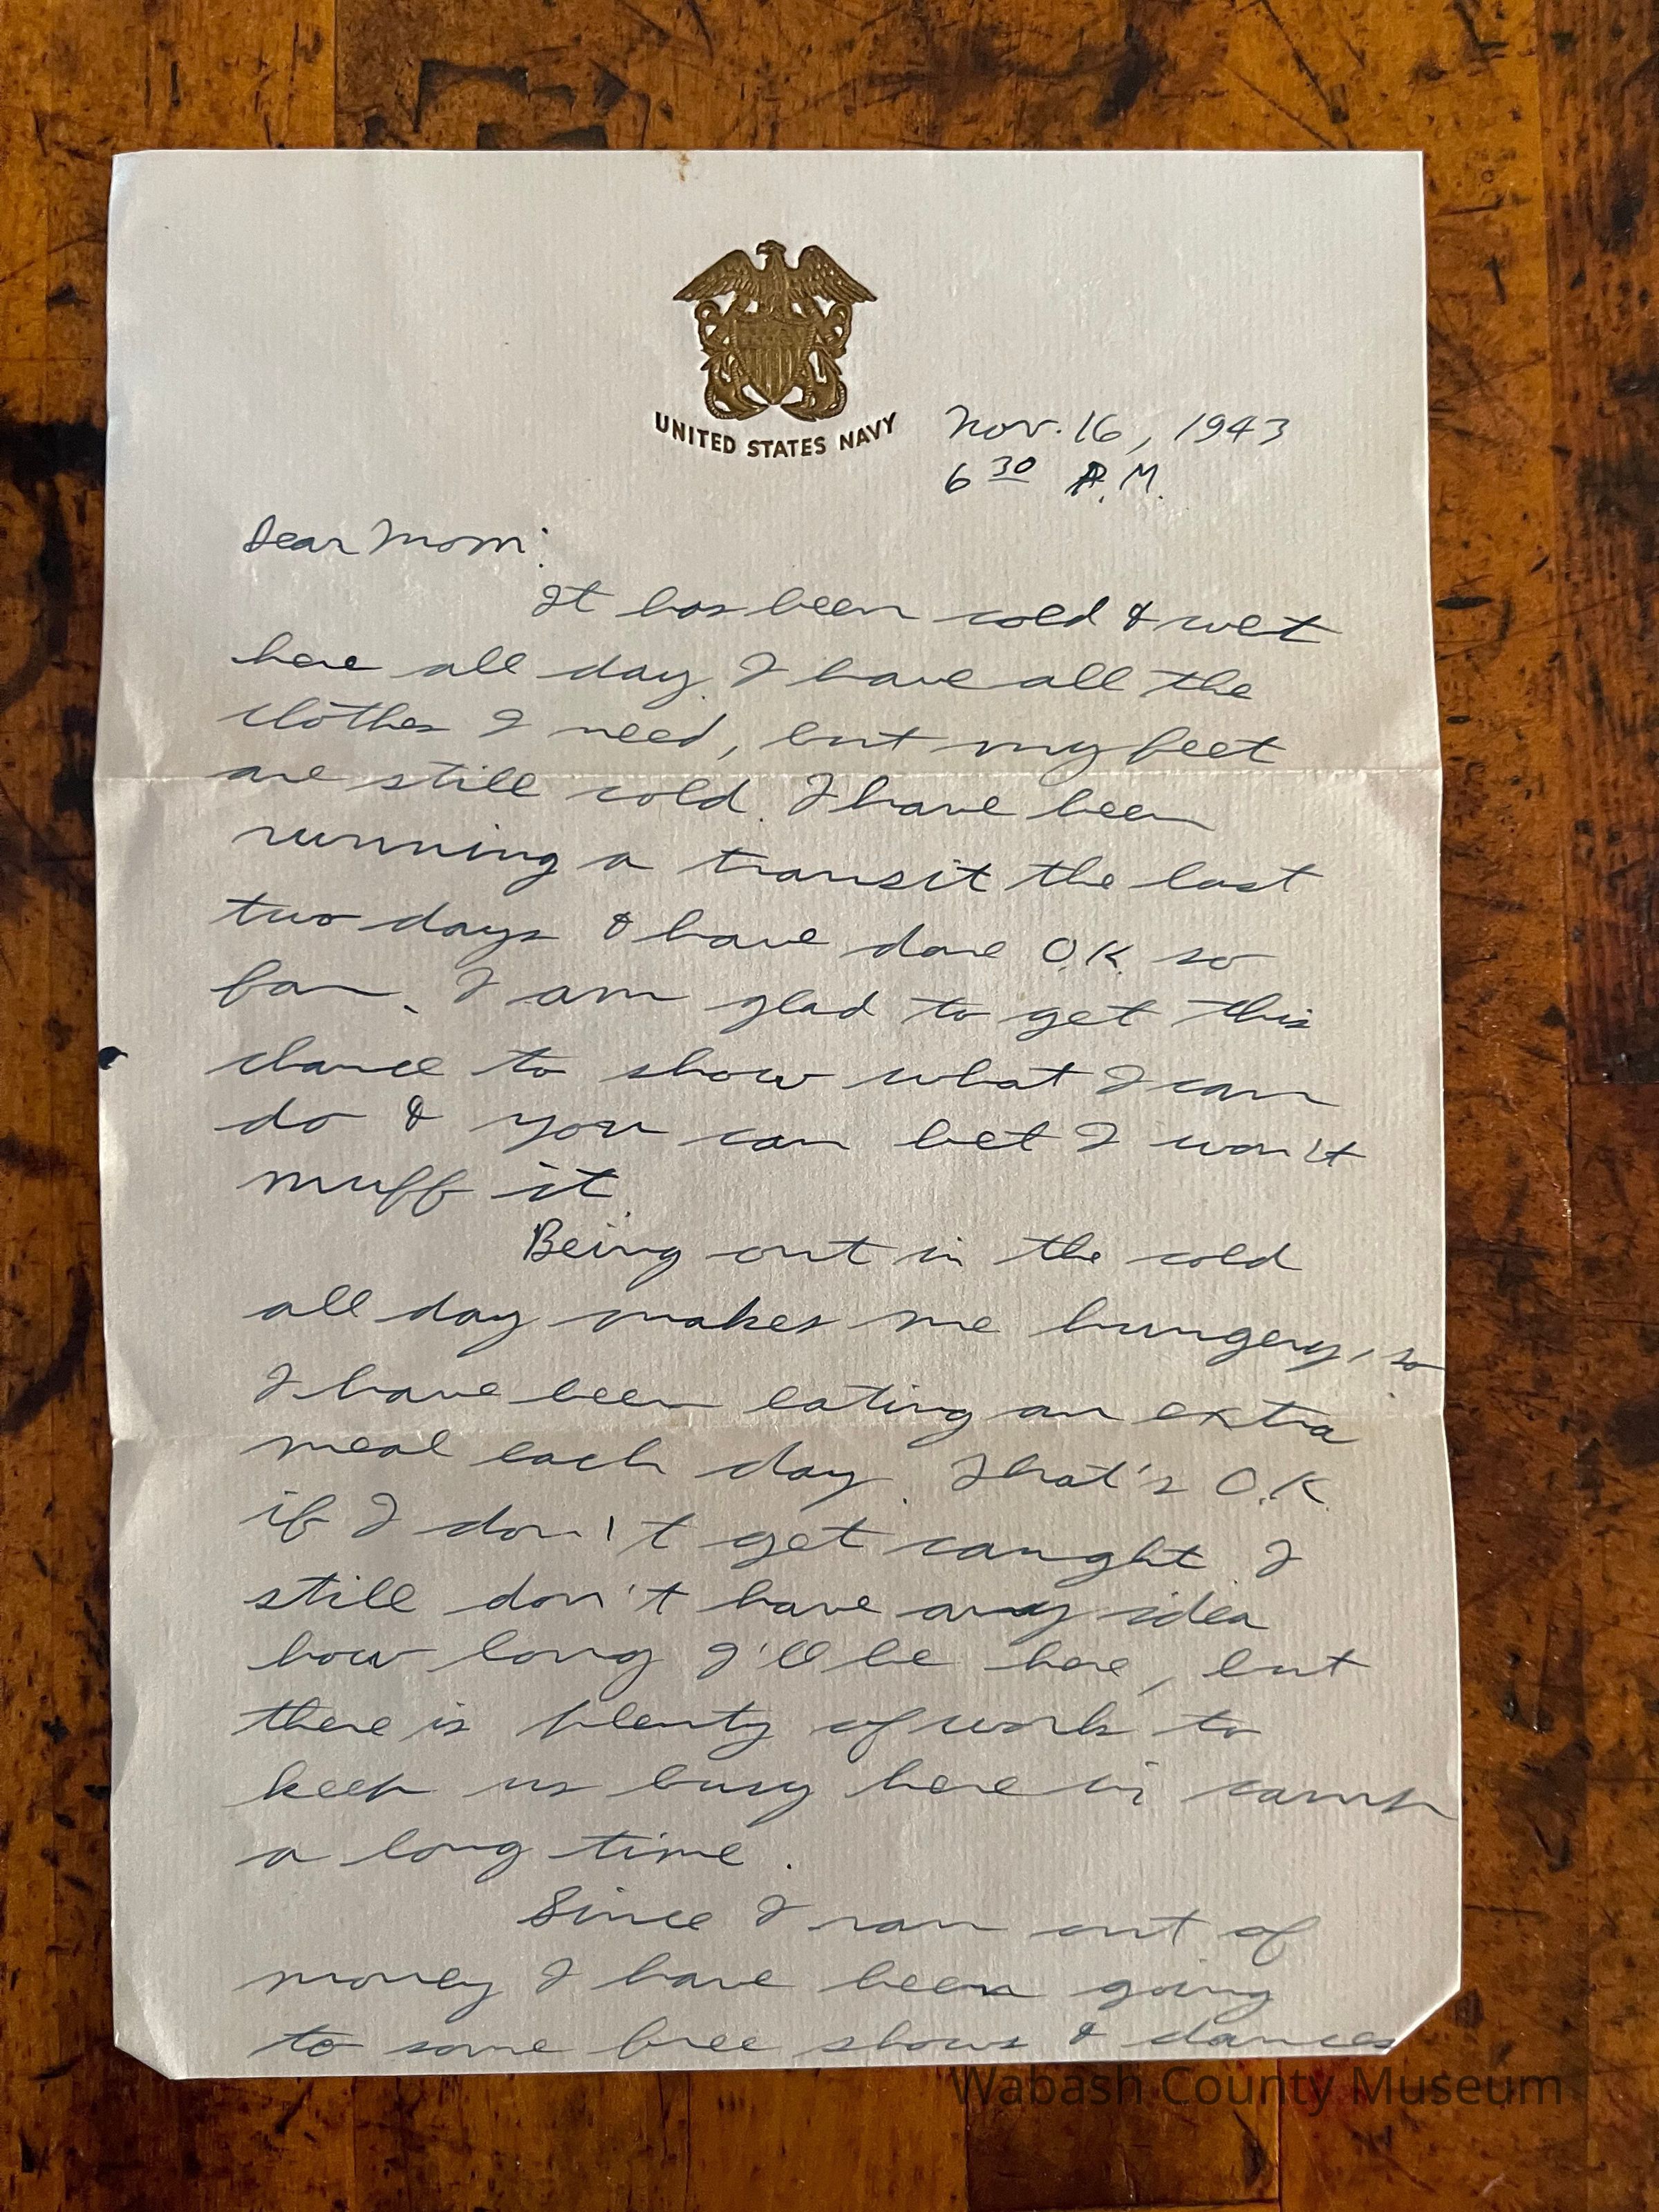 UNITED STATES NAVY
Nov. 16, 1943
6 30 P.M.
Dear Mom:
It has been cold & wet
here all day. I have all the
clothes I need, but my feet
are still cold. I have been
running a transit the last
two days & have done O.K. so
far. I am glad to get this
chance to show what I can
do & you can bet I won't
muff it.
Being out in the cold
all day makes me hungery, so
I have been eating an extra
meal each day. That's O.K.
if I don't get caught. I
still don't have any idea
how long I'll be here, but
there is plenty of work to
keep us busy here in camp
a long time.
Since I ran out of
money I have been going
to some free shows & dances
Wabash County Museum